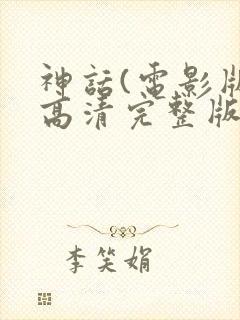 神话(电影版
高清完整版
李笑娟